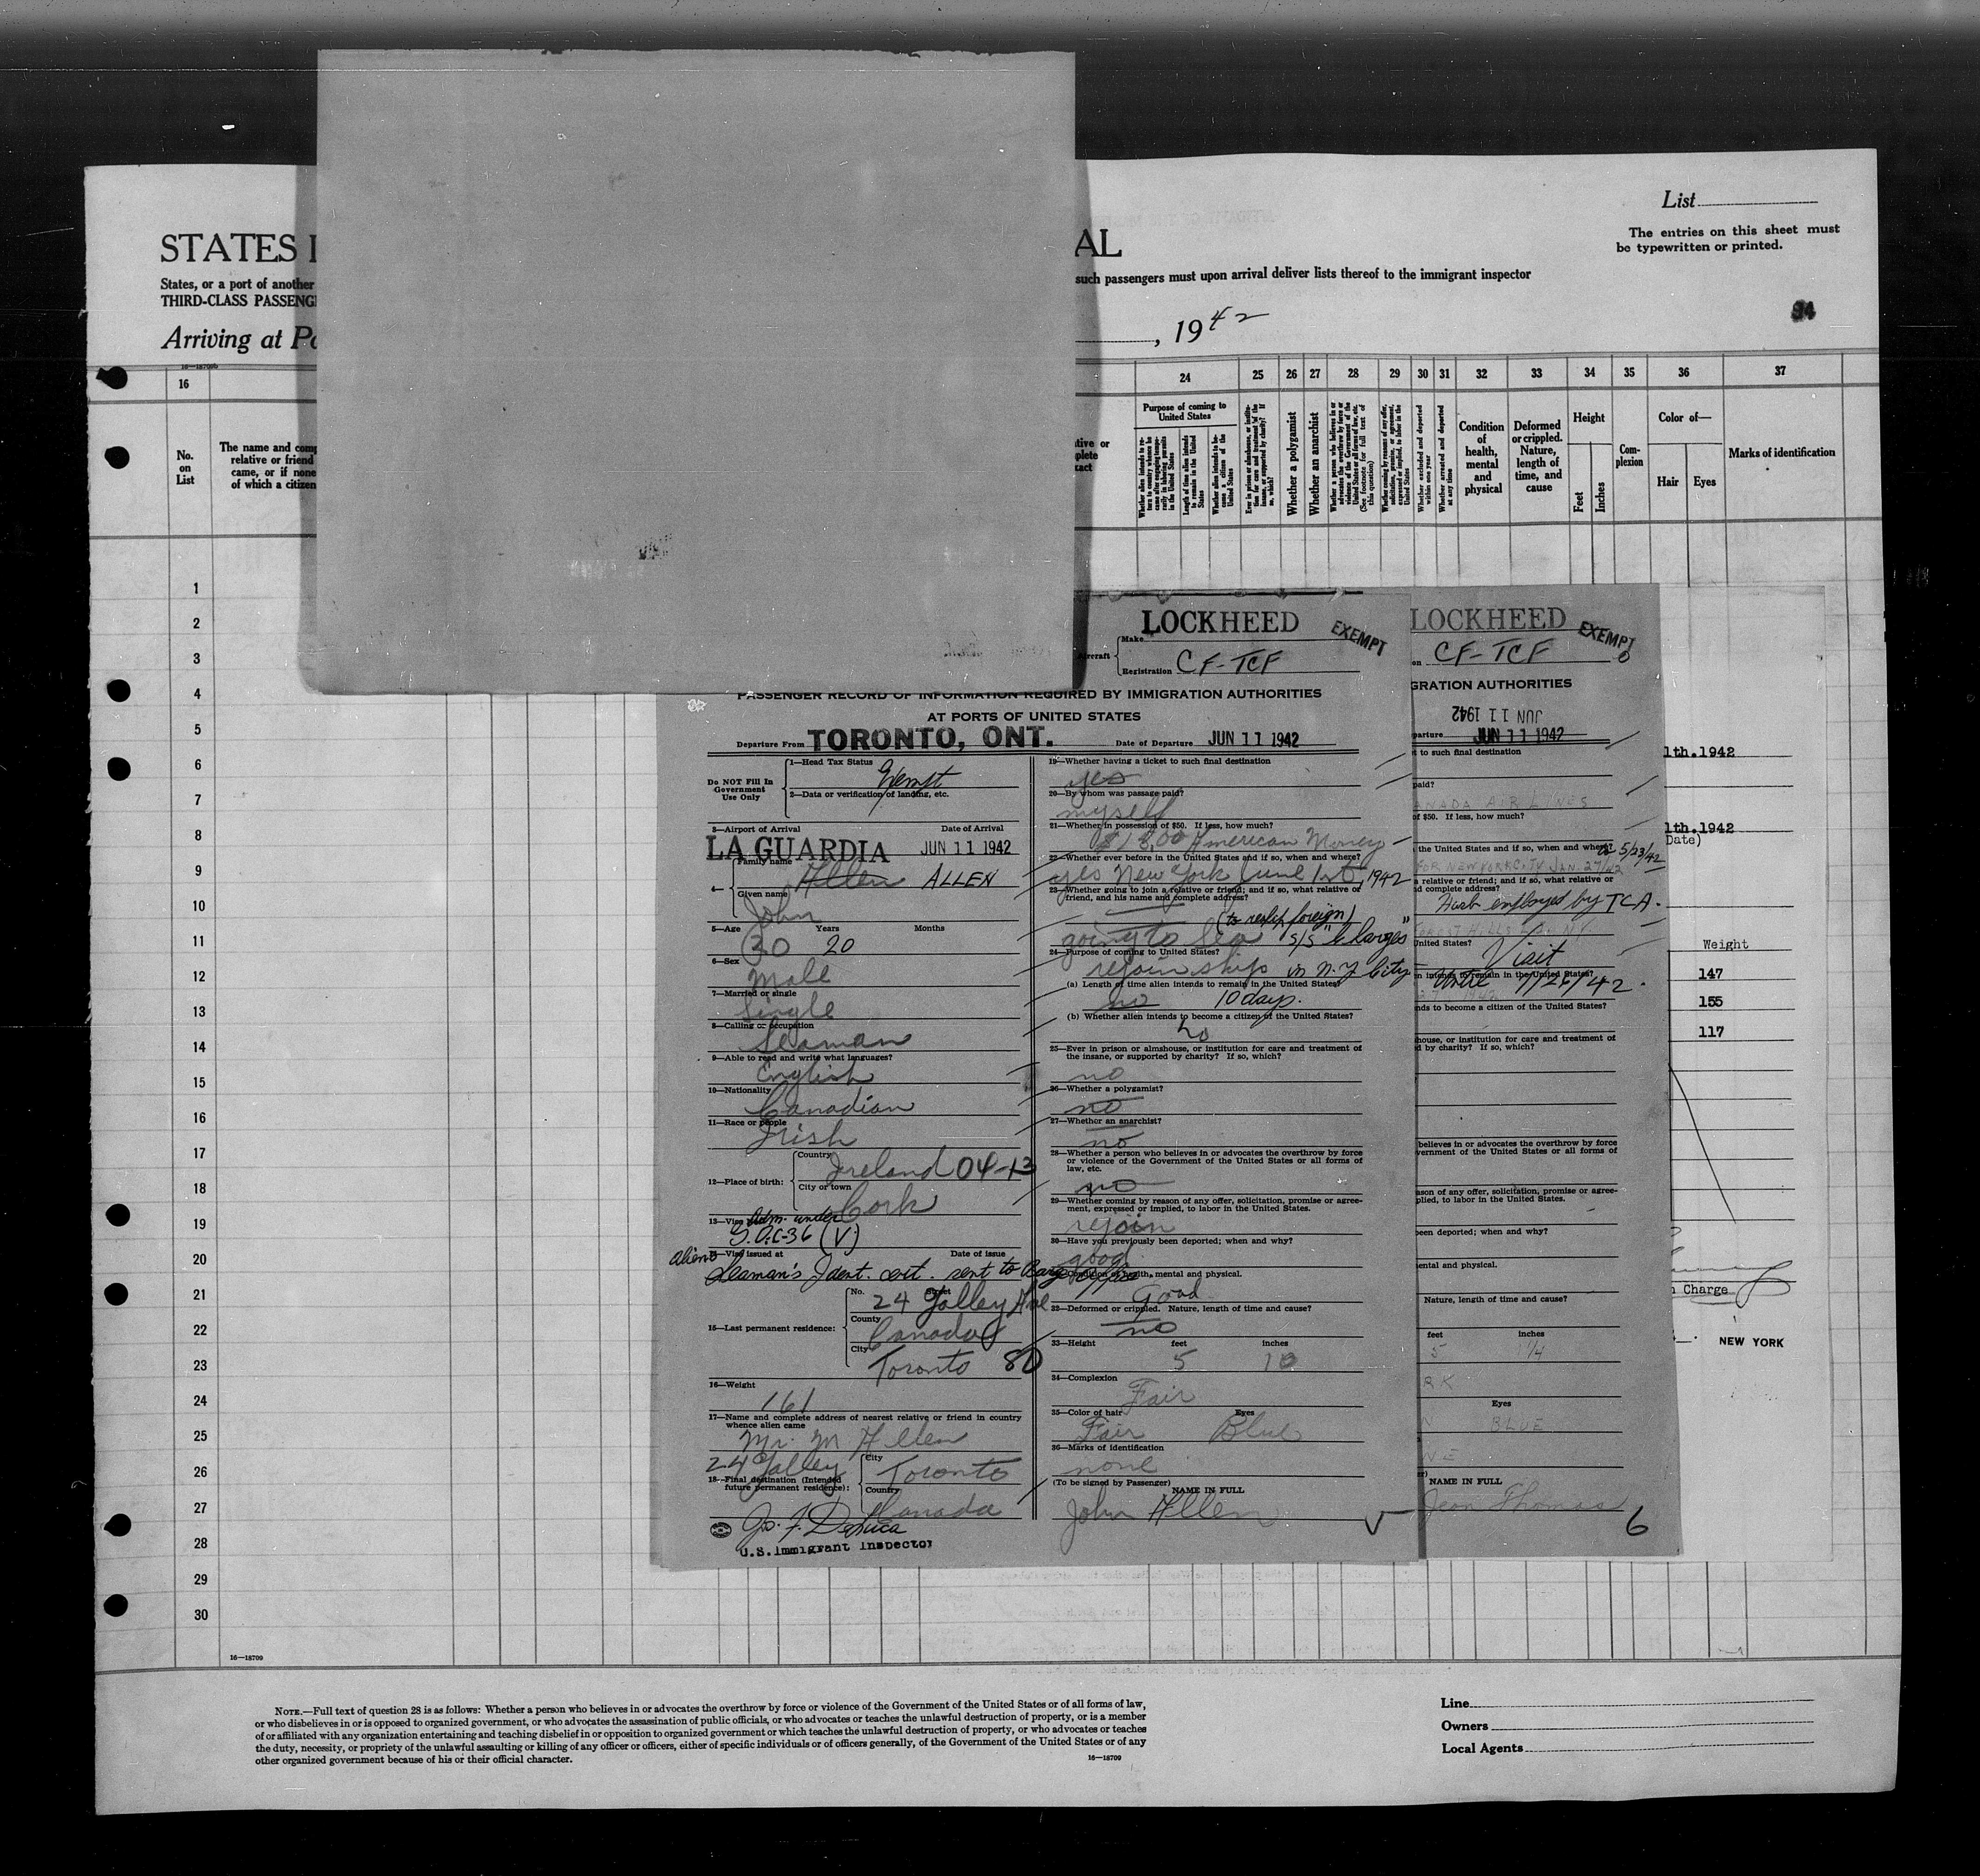 List
The entries on this sheet must
be typewritten or printed.
STATES
AL
States, or a port of another
such passengers must upon arrival deliver lists thereof to the immigrant inspector
THIRD-CLASS PASSENG
Arriving at Po
, 19 42
16
24 25 26 27 28 29 30 31 32 33 34 35 36 37
No.
on
List
The name and comp
relative or friend
came, or if none
of which a citizen
Purpose of coming to
United States
Whether a polygamist
Whether an anarchist
Condition
of
health,
mental
and
physical
Deformed
or crippled.
Nature,
length of
time, and
cause
Height
Feet
Inches
Com-
plexion
Color of—
Hair
Eyes
Marks of identification
1
2
3
4
5
6
7
8
9
10
11
12
13
14
15
16
17
18
19
20
21
22
23
24
25
26
27
28
29
30
16—18709
LOCKHEED
EXEMPT
Make
Registration CF-TCF
PASSENGER RECORD OF INFORMATION REQUIRED BY IMMIGRATION AUTHORITIES
AT PORTS OF UNITED STATES
Departure From TORONTO, ONT.
Date of Departure JUN 11 1942
Do NOT Fill In
Government
Use Only
1—Head Tax Status
Exempt
2—Data or verification of landing, etc.
3—Airport of Arrival
Date of Arrival
LA GUARDIA
JUN 11 1942
4—
Family name
Allen ALLEN
Given name
John
5—Age
Years
Months
20 20
6—Sex
Male
7—Married or single
Single
8—Calling or occupation
Seaman
9—Able to read and write what languages?
English
10—Nationality
Canadian
11—Race or people
Irish
12—Place of birth:
Country
Ireland 04-13
City or town
Cork
13—Visa Adm. under
(V)
Alien
14—Visa issued at
Date of issue
Seaman's Ident. cert. sent to Barge Office.
15—Last permanent residence:
No.
Street
24 Galley Ave
County
Canada
City
Toronto 80
16—Weight
161
17—Name and complete address of nearest relative or friend in country
whence alien came
Mr. M Allen
24 Galley
18—Final destination (Intended
future permanent residence):
City
Toronto
Country
Canada
U.S. Immigrant Inspector
19—Whether having a ticket to such final destination
yes
20—By whom was passage paid?
myself
21—Whether in possession of $50. If less, how much?
$15.00 American Money
22—Whether ever before in the United States and if so, when and where?
yes New York June 1st, 1942
23—Whether going to join a relative or friend; and if so, what relative or
friend, and his name and complete address?
(to reship foreign)
going to sea S/S
24—Purpose of coming to United States?
rejoin ship in N.Y City
(a) Length of time alien intends to remain in the United States?
no 10 days.
(b) Whether alien intends to become a citizen of the United States?
no
25—Ever in prison or almshouse, or institution for care and treatment of
the insane, or supported by charity? If so, which?
no
26—Whether a polygamist?
no
27—Whether an anarchist?
no
28—Whether a person who believes in or advocates the overthrow by force
or violence of the Government of the United States or all forms of
law, etc.
no
29—Whether coming by reason of any offer, solicitation, promise or agree-
ment, expressed or implied, to labor in the United States.
rejoin
30—Have you previously been deported; when and why?
good
31—Condition of health, mental and physical.
Good
32—Deformed or crippled. Nature, length of time and cause?
no
33—Height
feet
inches
5 10
34—Complexion
Fair
35—Color of hair
Eyes
Fair Blue
36—Marks of identification
none
(To be signed by Passenger)
NAME IN FULL
John Allen
LOCKHEED
EXEMPT
CF-TCF
GRATION AUTHORITIES
JUN 11 1942
JUN 11 1942
to such final destination
paid?
ANADA AIR LINES
of $50. If less, how much?
the United States and if so, when and where?
5/23/42
FOR NEW YORK CITY JAN 27/42
a relative or friend; and if so, what relative or
d complete address?
Husb employed by TCA.
FOREST HILLS L.I. NY
United States?
Visit
n intends to remain in the United States?
Until 7/26/42.
nds to become a citizen of the United States?
house, or institution for care and treatment of
d by charity? If so, which?
believes in or advocates the overthrow by force
vernment of the United States or all forms of
ason of any offer, solicitation, promise or agree-
plied, to labor in the United States.
been deported; when and why?
ental and physical.
Nature, length of time and cause?
feet
inches
5
RK
Eyes
BLUE
NE
NAME IN FULL
Jean Thomas
6
1th.1942
1th.1942
Date)
Weight
147
155
117
n Charge
NEW YORK
NOTE.—Full text of question 28 is as follows: Whether a person who believes in or advocates the overthrow by force or violence of the Government of the United States or of all forms of law,
or who disbelieves in or is opposed to organized government, or who advocates the assassination of public officials, or who advocates or teaches the unlawful destruction of property, or is a member
of or affiliated with any organization entertaining and teaching disbelief in or opposition to organized government or which teaches the unlawful destruction of property, or who advocates or teaches
the duty, necessity, or propriety of the unlawful assaulting or killing of any officer or officers, either of specific individuals or of officers generally, of the Government of the United States or of any
other organized government because of his or their official character.
16—18709
Line
Owners
Local Agents